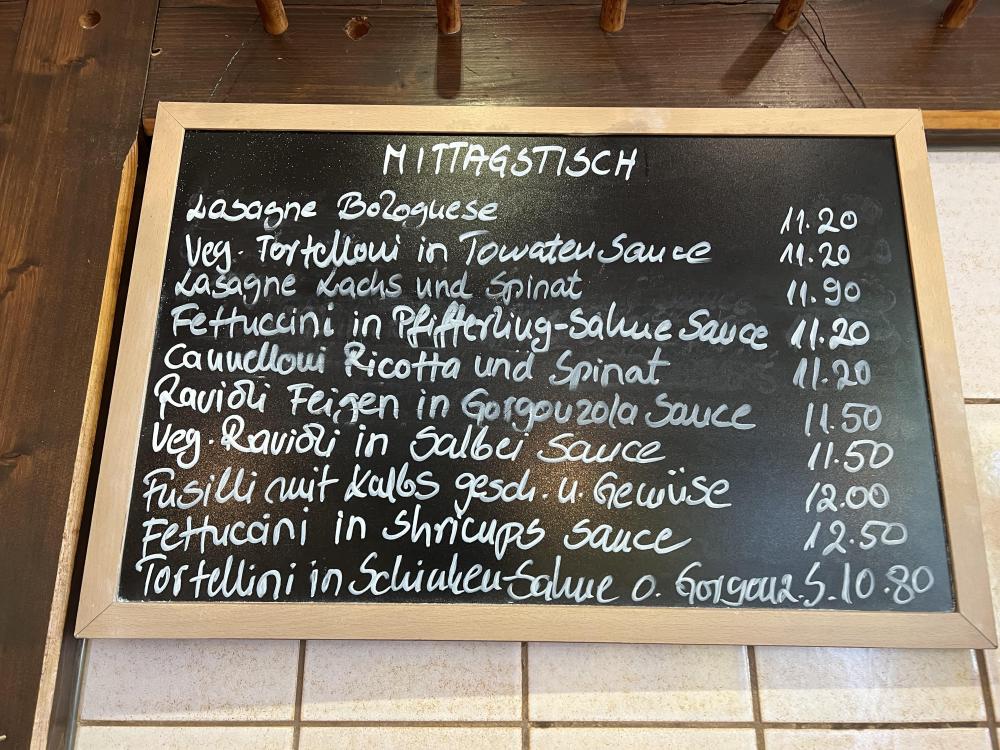 MITTAGSTISCH
Lasagne Bolognese 11.20
Veg. Tortelloni in Tomaten Sauce 11.20
Lasagne Lachs und Spinat 11.90
Fettuccini in Pfifferling-Sahne Sauce 11.20
Cannelloni Ricotta und Spinat 11.20
Ravioli Feigen in Gorgonzola Sauce 11.50
Veg. Ravioli in Salbei Sauce 11.50
Fusilli mit Kalbs gesch. u. Gewüse 12.00
Fettuccini in Shrimps Sauce 12.50
Tortellini in Schinken-Sahne o. Gorgonz. S. 10.80